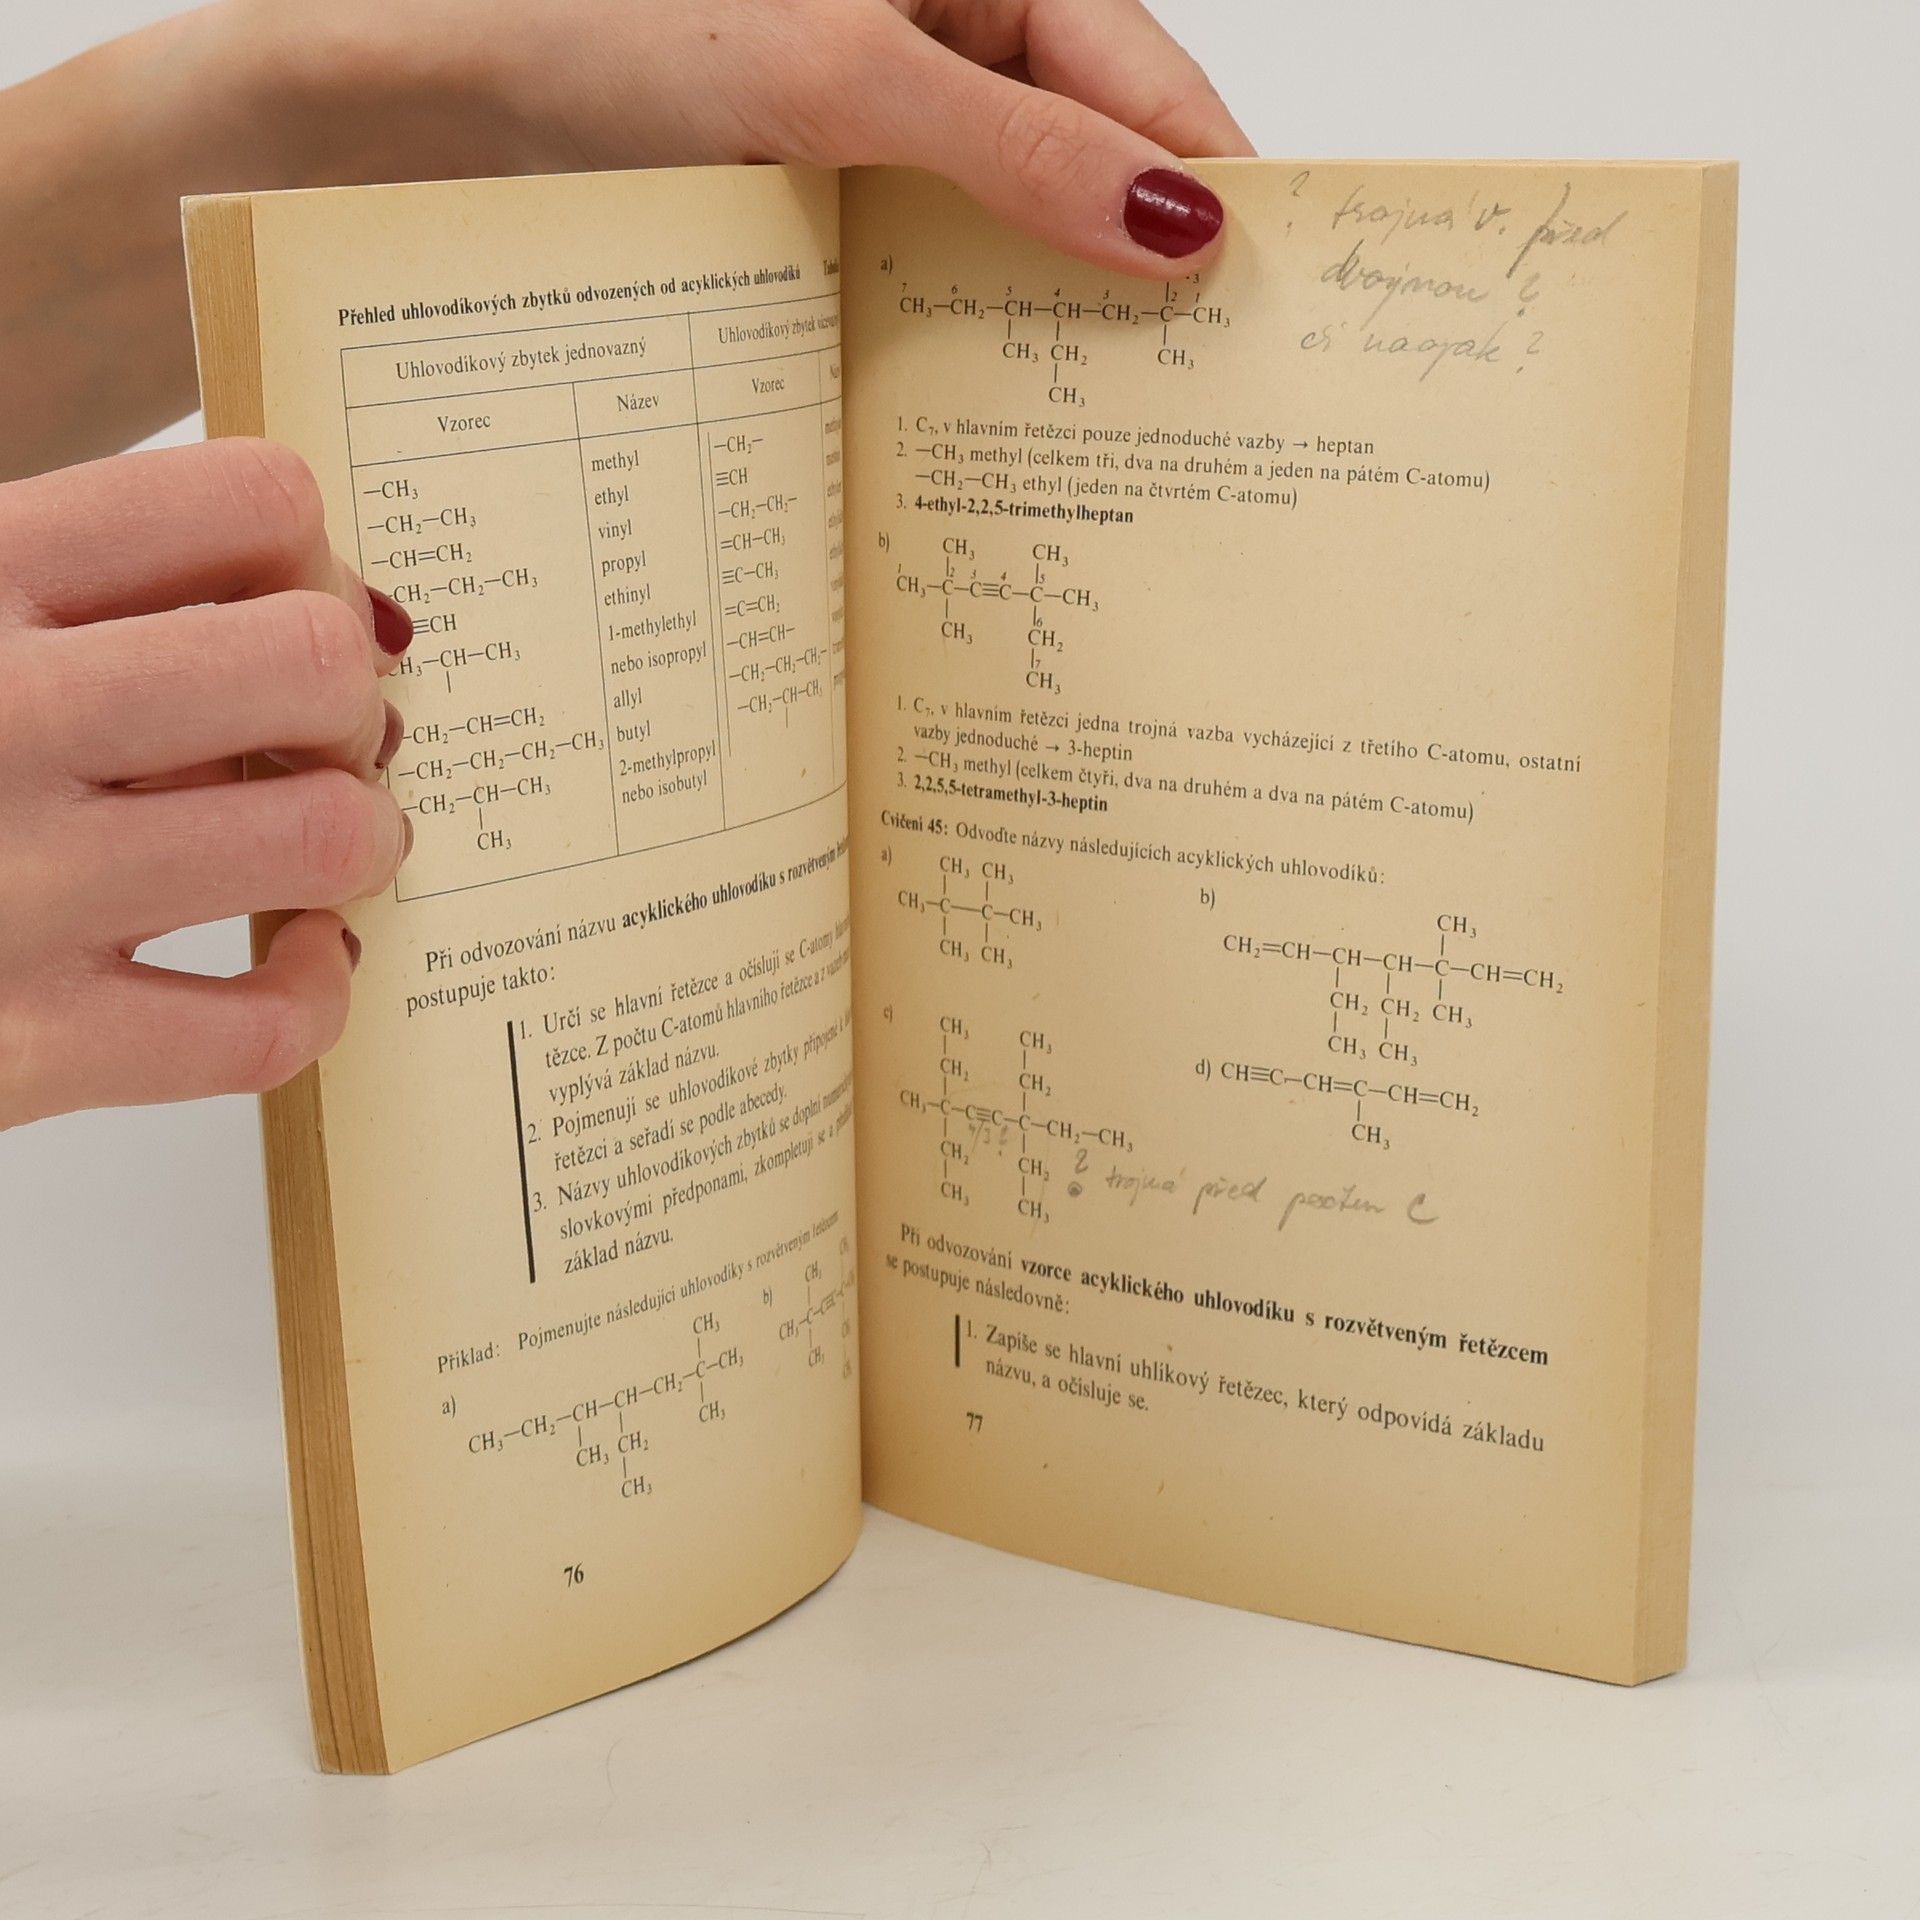 Přehled uhlovodíkových zbytků odvozených od acyklických uhlovodíků
Uhlovodíkový zbytek jednovazný
Uhlovodíkový zbytek
Vzorec Název Vzorec
—CH₃ methyl —CH₂—
—CH₂—CH₃ ethyl ≡CH
—CH=CH₂ vinyl —CH₂—CH₂—
—CH₂—CH₂—CH₃ propyl =CH—CH₃
≡CH ethinyl ≡C—CH₃
CH₃—CH—CH₃ 1-methylethyl =C=CH₂
nebo isopropyl —CH=CH—
—CH₂—CH=CH₂ allyl —CH₂—CH₂—CH₂—
—CH₂—CH₂—CH₂—CH₃ butyl —CH₂—CH—CH₃
—CH₂—CH—CH₃ 2-methylpropyl
CH₃ nebo isobutyl
Při odvozování názvu acyklického uhlovodíku s rozvětveným
postupuje takto:
1. Určí se hlavní řetězce a očíslují se C-atomy
tězce. Z počtu C-atomů hlavního řetězce a z
vyplývá základ názvu.
2. Pojmenují se uhlovodíkové zbytky připojené k
řetězci a seřadí se podle abecedy.
3. Názvy uhlovodíkových zbytků se doplní
slovkovými předponami, zkompletují se a
základ názvu.
Příklad: Pojmenujte následující uhlovodíky s rozvětveným řetězcem
a) b)
CH₃
CH₃—CH₂—CH—CH—CH₂—C—CH₃
CH₃ CH₂ CH₃
CH₃
CH₃
CH₃—C—C≡C—C
CH₃
76
? trojná v. před
dvojnou ?
či naopak ?
a)
3
7 6 5 4 3 2 1
CH₃—CH₂—CH—CH—CH₂—C—CH₃
CH₃ CH₂ CH₃
CH₃
1. C₇, v hlavním řetězci pouze jednoduché vazby → heptan
2. —CH₃ methyl (celkem tři, dva na druhém a jeden na pátém C-atomu)
—CH₂—CH₃ ethyl (jeden na čtvrtém C-atomu)
3. 4-ethyl-2,2,5-trimethylheptan
b)
CH₃ CH₃
1 2 3 4 5
CH₃—C—C≡C—C—CH₃
6
CH₃ CH₂
7
CH₃
1. C₇, v hlavním řetězci jedna trojná vazba vycházející z třetího C-atomu, ostatní
vazby jednoduché → 3-heptin
2. —CH₃ methyl (celkem čtyři, dva na druhém a dva na pátém C-atomu)
3. 2,2,5,5-tetramethyl-3-heptin
Cvičení 45: Odvoďte názvy následujících acyklických uhlovodíků:
a)
CH₃ CH₃
CH₃—C—C—CH₃
CH₃ CH₃
b)
CH₃
CH₂=CH—CH—CH—C—CH=CH₂
CH₂ CH₂ CH₃
CH₃ CH₃
c)
CH₃ CH₃
CH₂ CH₂
CH₃—C—C≡C—C—CH₂—CH₃
4/3 ?
CH₂ CH₂
CH₃ CH₃
? trojná před
C
d) CH≡C—CH=C—CH=CH₂
CH₃
Při odvozování vzorce acyklického uhlovodíku s rozvětveným řetězcem
se postupuje následovně:
1. Zapíše se hlavní uhlíkový řetězec, který odpovídá základu
názvu, a očísluje se.
77